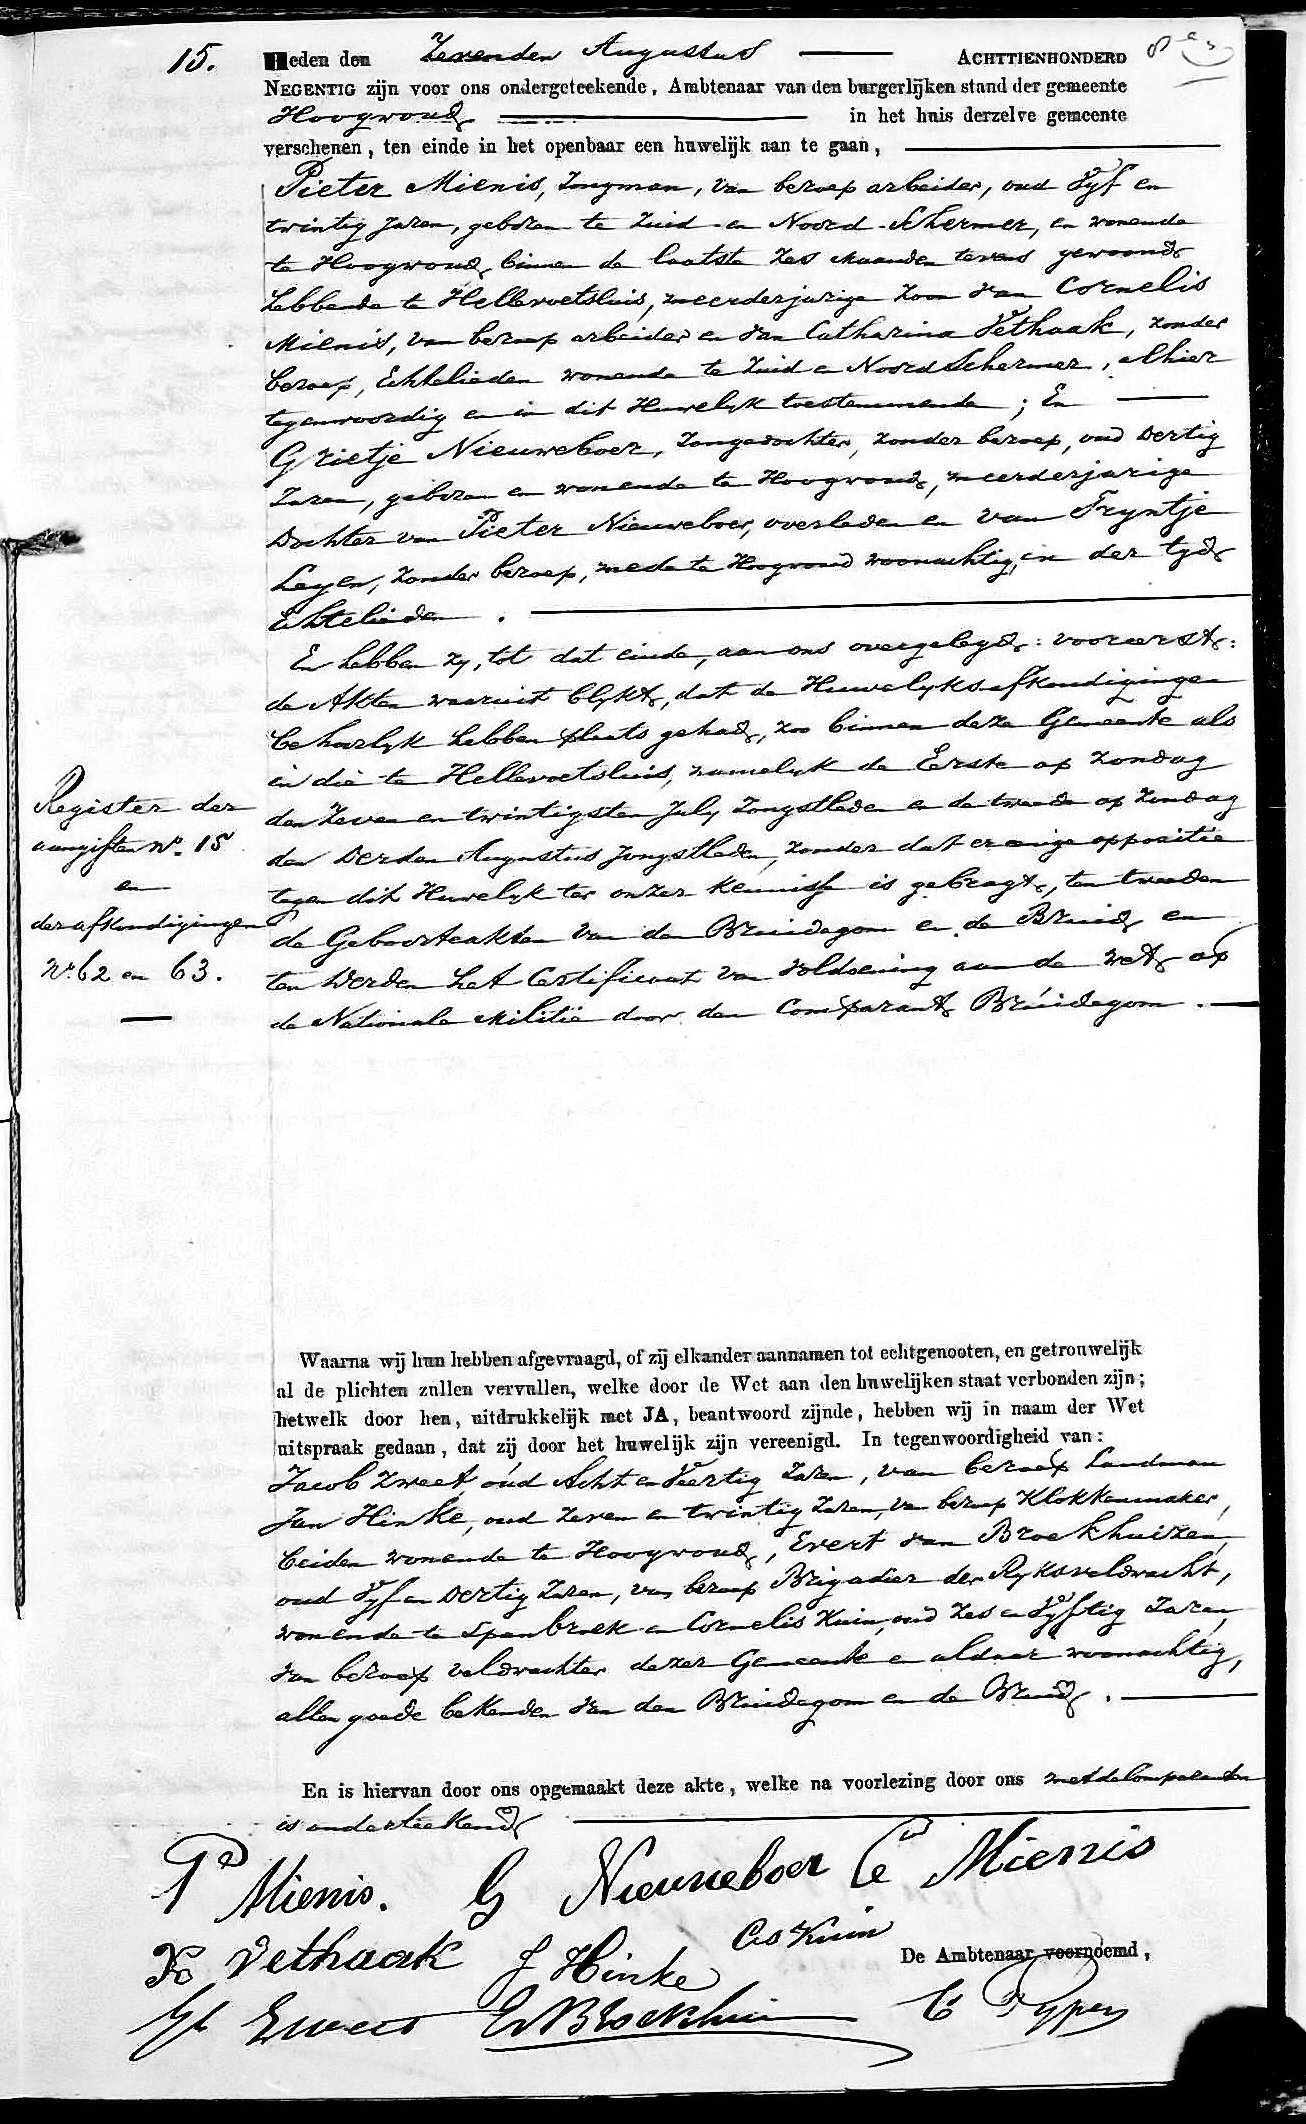 15. Heden den Zevenden Augustus ACHTTIENHONDERD
NEGENTIG zijn voor ons ondergeteekende, Ambtenaar van den burgerlijken stand der gemeente
Hoogwoud in het huis derzelve gemeente
verschenen, ten einde in het openbaar een huwelijk aan te gaan,
Pieter Mienis, Jongman, van beroep arbeider, oud Vyf en
twintig Jaren, geboren te Zuid en Noord-Schermer, en wonende
te Hoogwoud, binnen de laatste Zes Maanden tevens gewoond
hebbende te Hellevoetsluis, meerderjarige Zoon van Cornelis
Mienis, van beroep arbeider en van Catharina Vethaak, zonder
beroep, Echtelieden wonende te Zuid en Noord Schermer, alhier
tegenwoordig en in dit Huwelyk toestemmende; En
Grietje Nieuweboer, Jongedochter, zonder beroep, oud Dertig
Jaren, geboren en wonende te Hoogwoud, meerderjarige
Dochter van Pieter Nieuweboer, overleden en van Tryntje
Leyen, zonder beroep, mede te Hoogwoud woonachtig, in der tyd
Echtelieden.
En hebben zy, tot dat einde, aan ons overgelegd: vooreerst:
de Akten waaruit blykt, dat de Huwelyksafkondigingen
behoorlyk hebben plaats gehad, zoo binnen deze Gemeente als
in die te Hellevoetsluis, namelyk de Eerste op Zondag
den Zeven en twintigsten July Jongstleden en de tweede op Zondag
den Derden Augustus Jongstleden, zonder dat er eenige oppositie
tegen dit Huwelyk ter onzer kennisse is gebragt, ten tweeden
de Geboorteakten van den Bruidegom en de Bruid en
ten Derden het Certificaat van voldoening aan de wet op
de Nationale Militie door den Comparant Bruidegom.
Register der
aangiften No. 15
en
der afkondigingen
No. 62 en 63.
Waarna wij hun hebben afgevraagd, of zij elkander aannamen tot echtgenooten, en getrouwelijk
al de plichten zullen vervullen, welke door de Wet aan den huwelijken staat verbonden zijn;
hetwelk door hen, uitdrukkelijk met JA, beantwoord zijnde, hebben wij in naam der Wet
uitspraak gedaan, dat zij door het huwelijk zijn vereenigd. In tegenwoordigheid van:
Jacob Zweet, oud Acht en Veertig Jaren, van beroep Landman
Jan Hinke, oud Zeven en twintig Jaren, van beroep Klokkenmaker,
beiden wonende te Hoogwoud, Evert van Broekhuizen,
oud Vyf en Dertig Jaren, van beroep Brigadier der Ryksveldwacht,
wonende te Spanbroek en Cornelis Kuin, oud Zes en Vyftig Jaren,
van beroep veldwachter dezer Gemeente en aldaar woonachtig,
allen goede bekenden van den Bruidegom en de Bruid.
En is hiervan door ons opgemaakt deze akte, welke na voorlezing door ons met de Comparanten
is onderteekend
P Mienis. G Nieuweboer C Mienis
K Vethaak J Hinke Cs Kuin De Ambtenaar voornoemd,
Zweet EvBroekhui C Pypers